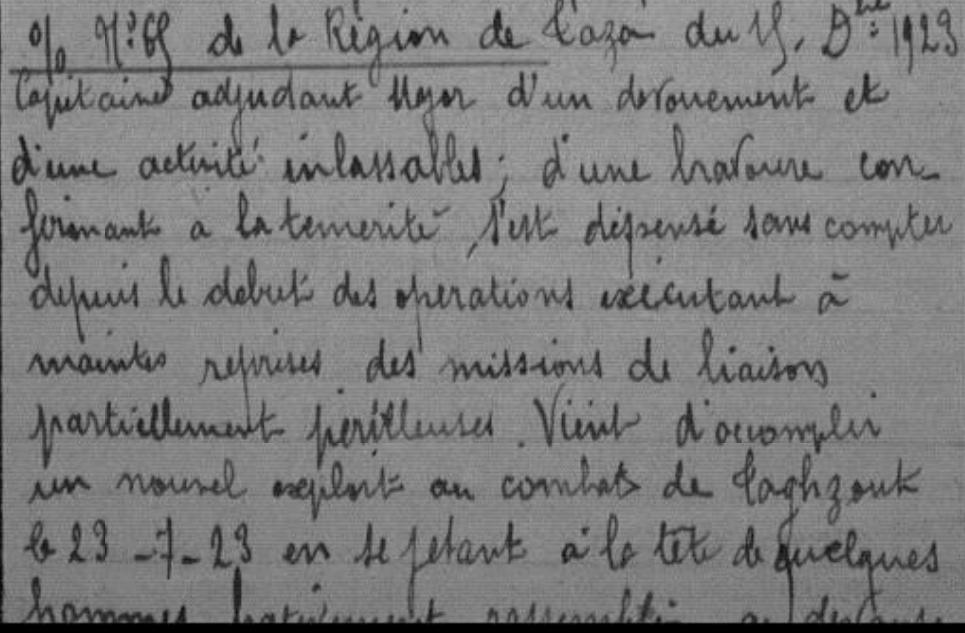 % N°: 65 de la Région de Taza du 15. Dbre: 1923
Capitaine adjudant Major d'un devouement et
d'une activité inlassables; d'une bravoure con-
firmant à la temerité, s'est dépensé sans compter
depuis le debut des operations exécutant à
maintes reprises des missions de liaison
partiellement périlleuses. Vient d'accomplir
un nouvel exploit au combat de Taghzout
le 23-7-23 en se jetant à la tête de quelques
hommes